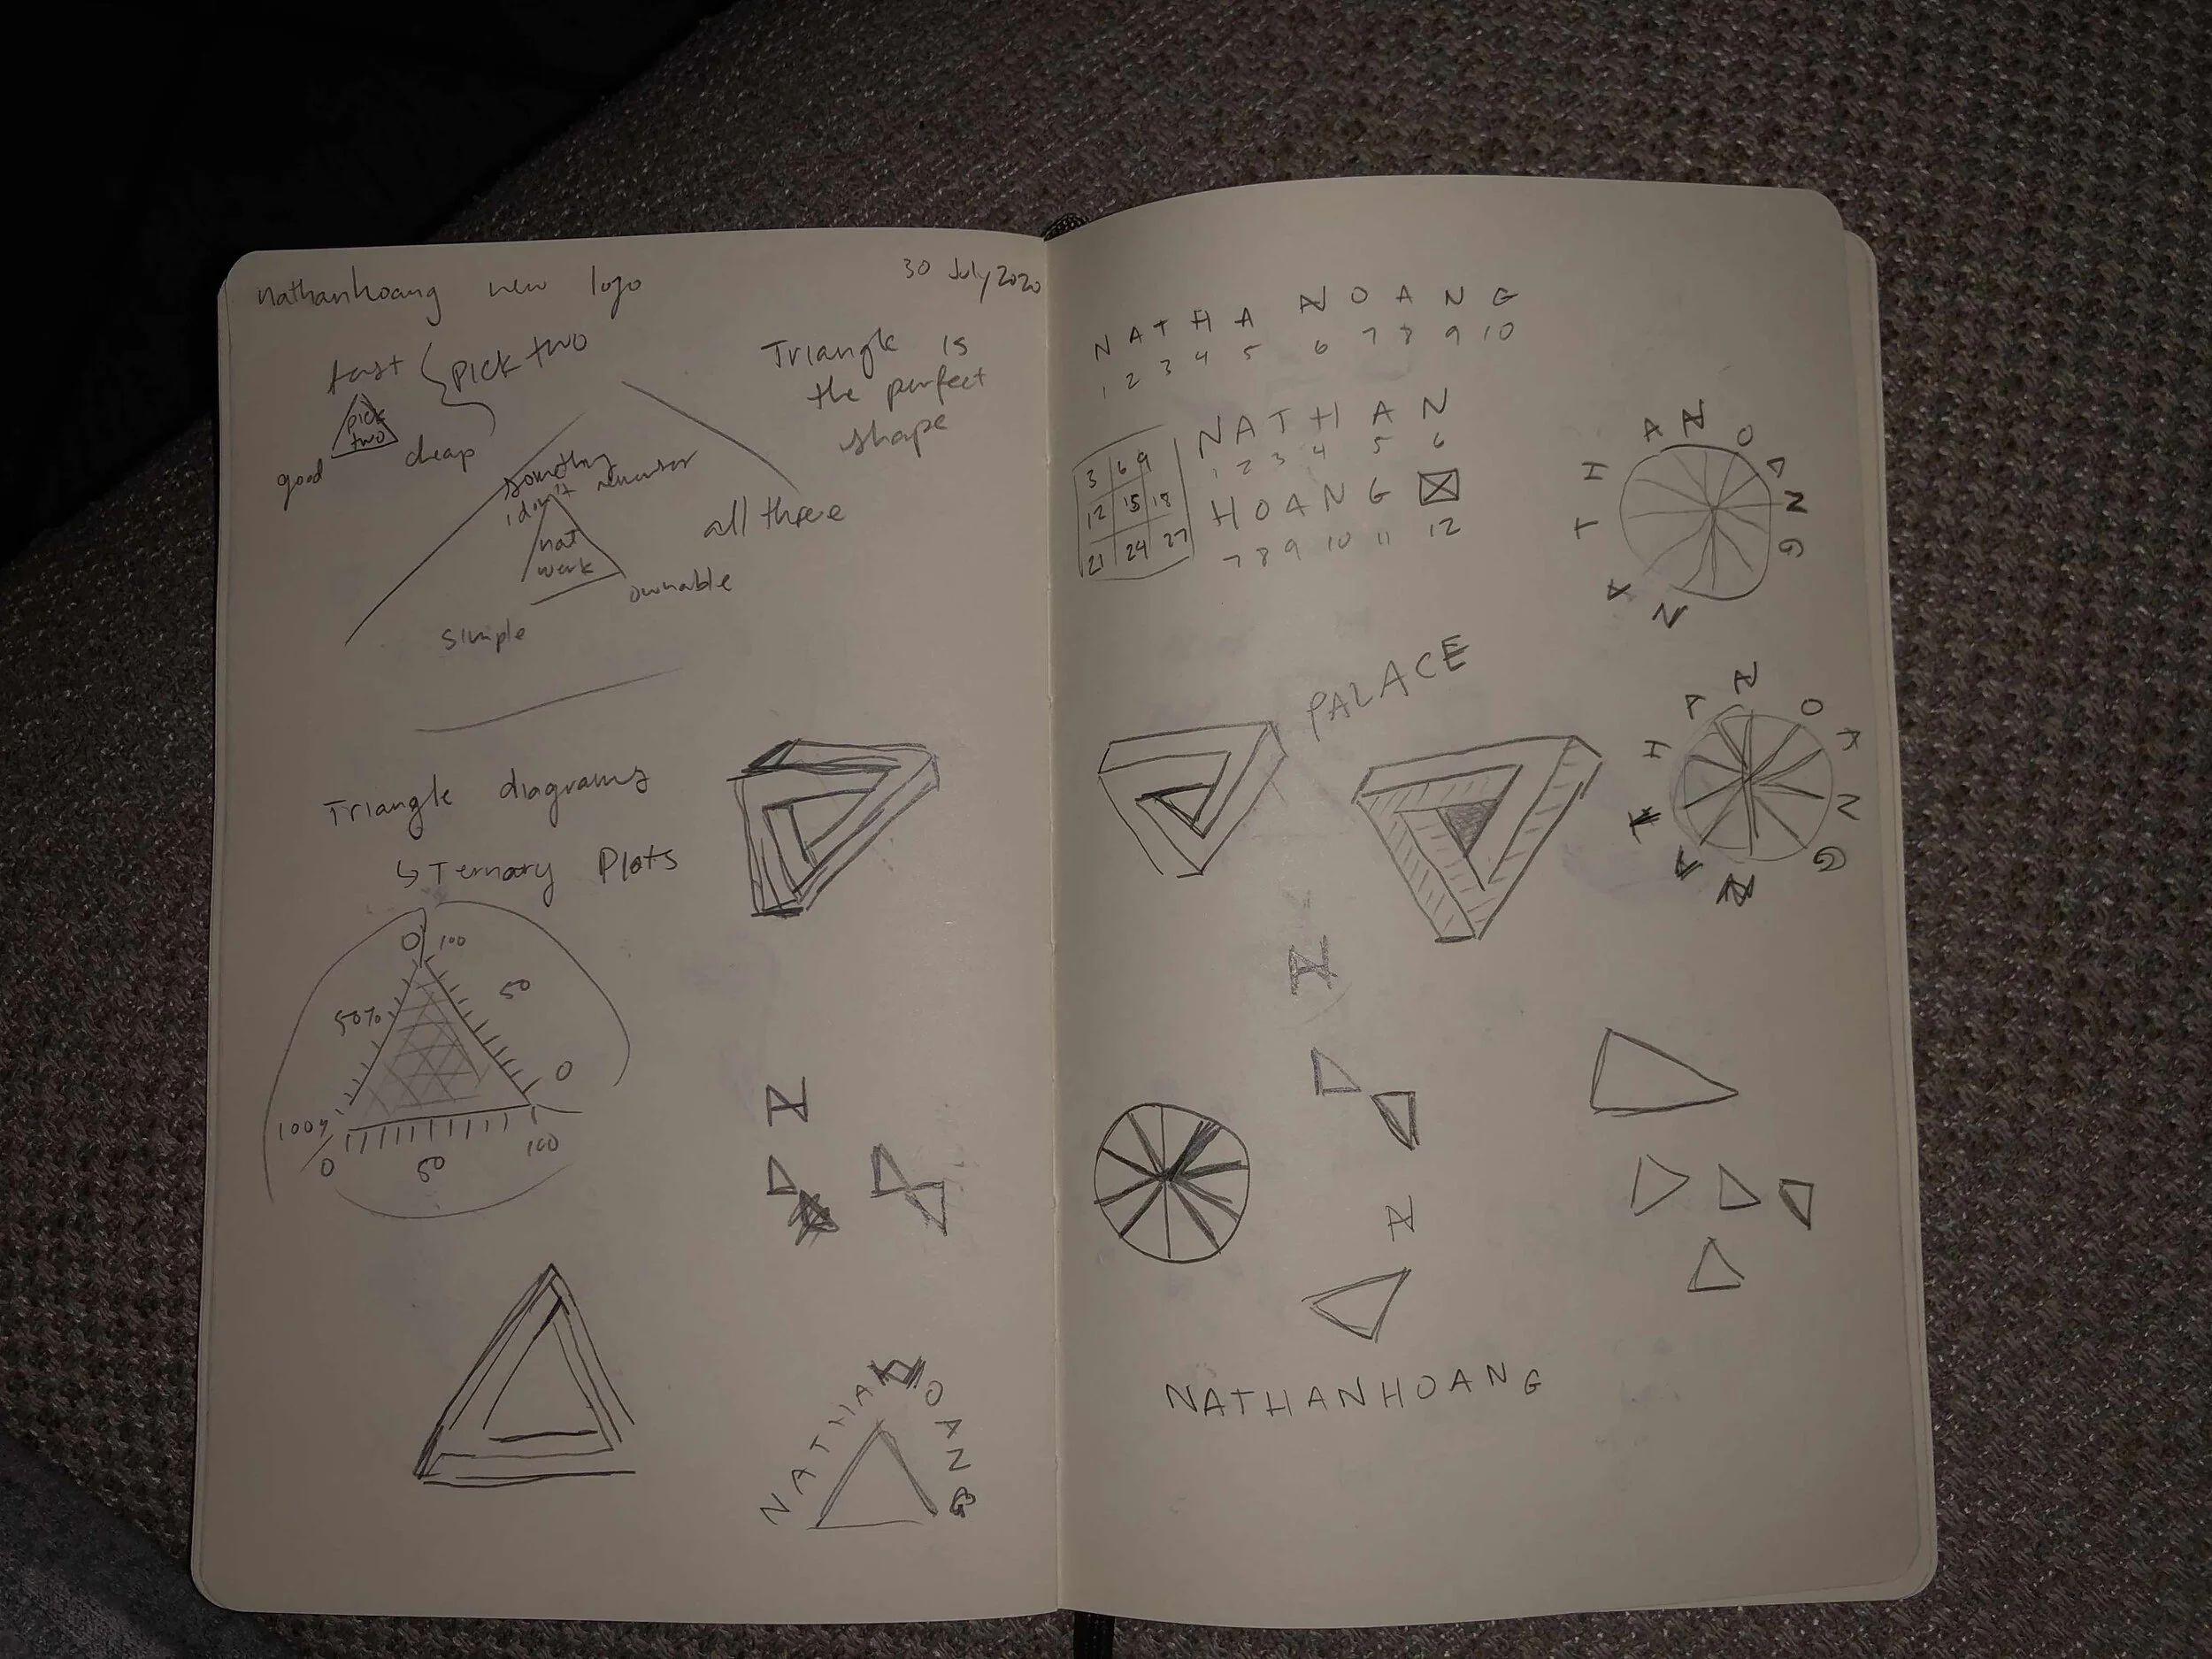 nathanhoang new logo
30 July 2020
fast
pick two
pick
two
good
cheap
Triangle is
the perfect
shape
something
i don't remember
nat
work
all three
ownable
simple
Triangle diagrams
↳ Ternary Plots
0 100
50%
50
0
100%
0
50
100
N
NATHA OANG
N A T H A N O A N G
1 2 3 4 5 6 7 8 9 10
3 6 9
12 15 18
21 24 27
N A T H A N
1 2 3 4 5 6
H O A N G
7 8 9 10 11 12
N A T H A N O A N G
PALACE
N A T H A N O A N G
N
N
NATHANHOANG